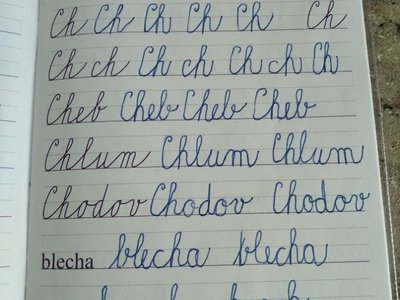 Ch Ch Ch Ch Ch Ch
Ch ch Ch ch Ch ch Ch
Cheb Cheb Cheb Cheb
Chlum Chlum Chlum
Chodov Chodov Chodov
blecha blecha blecha